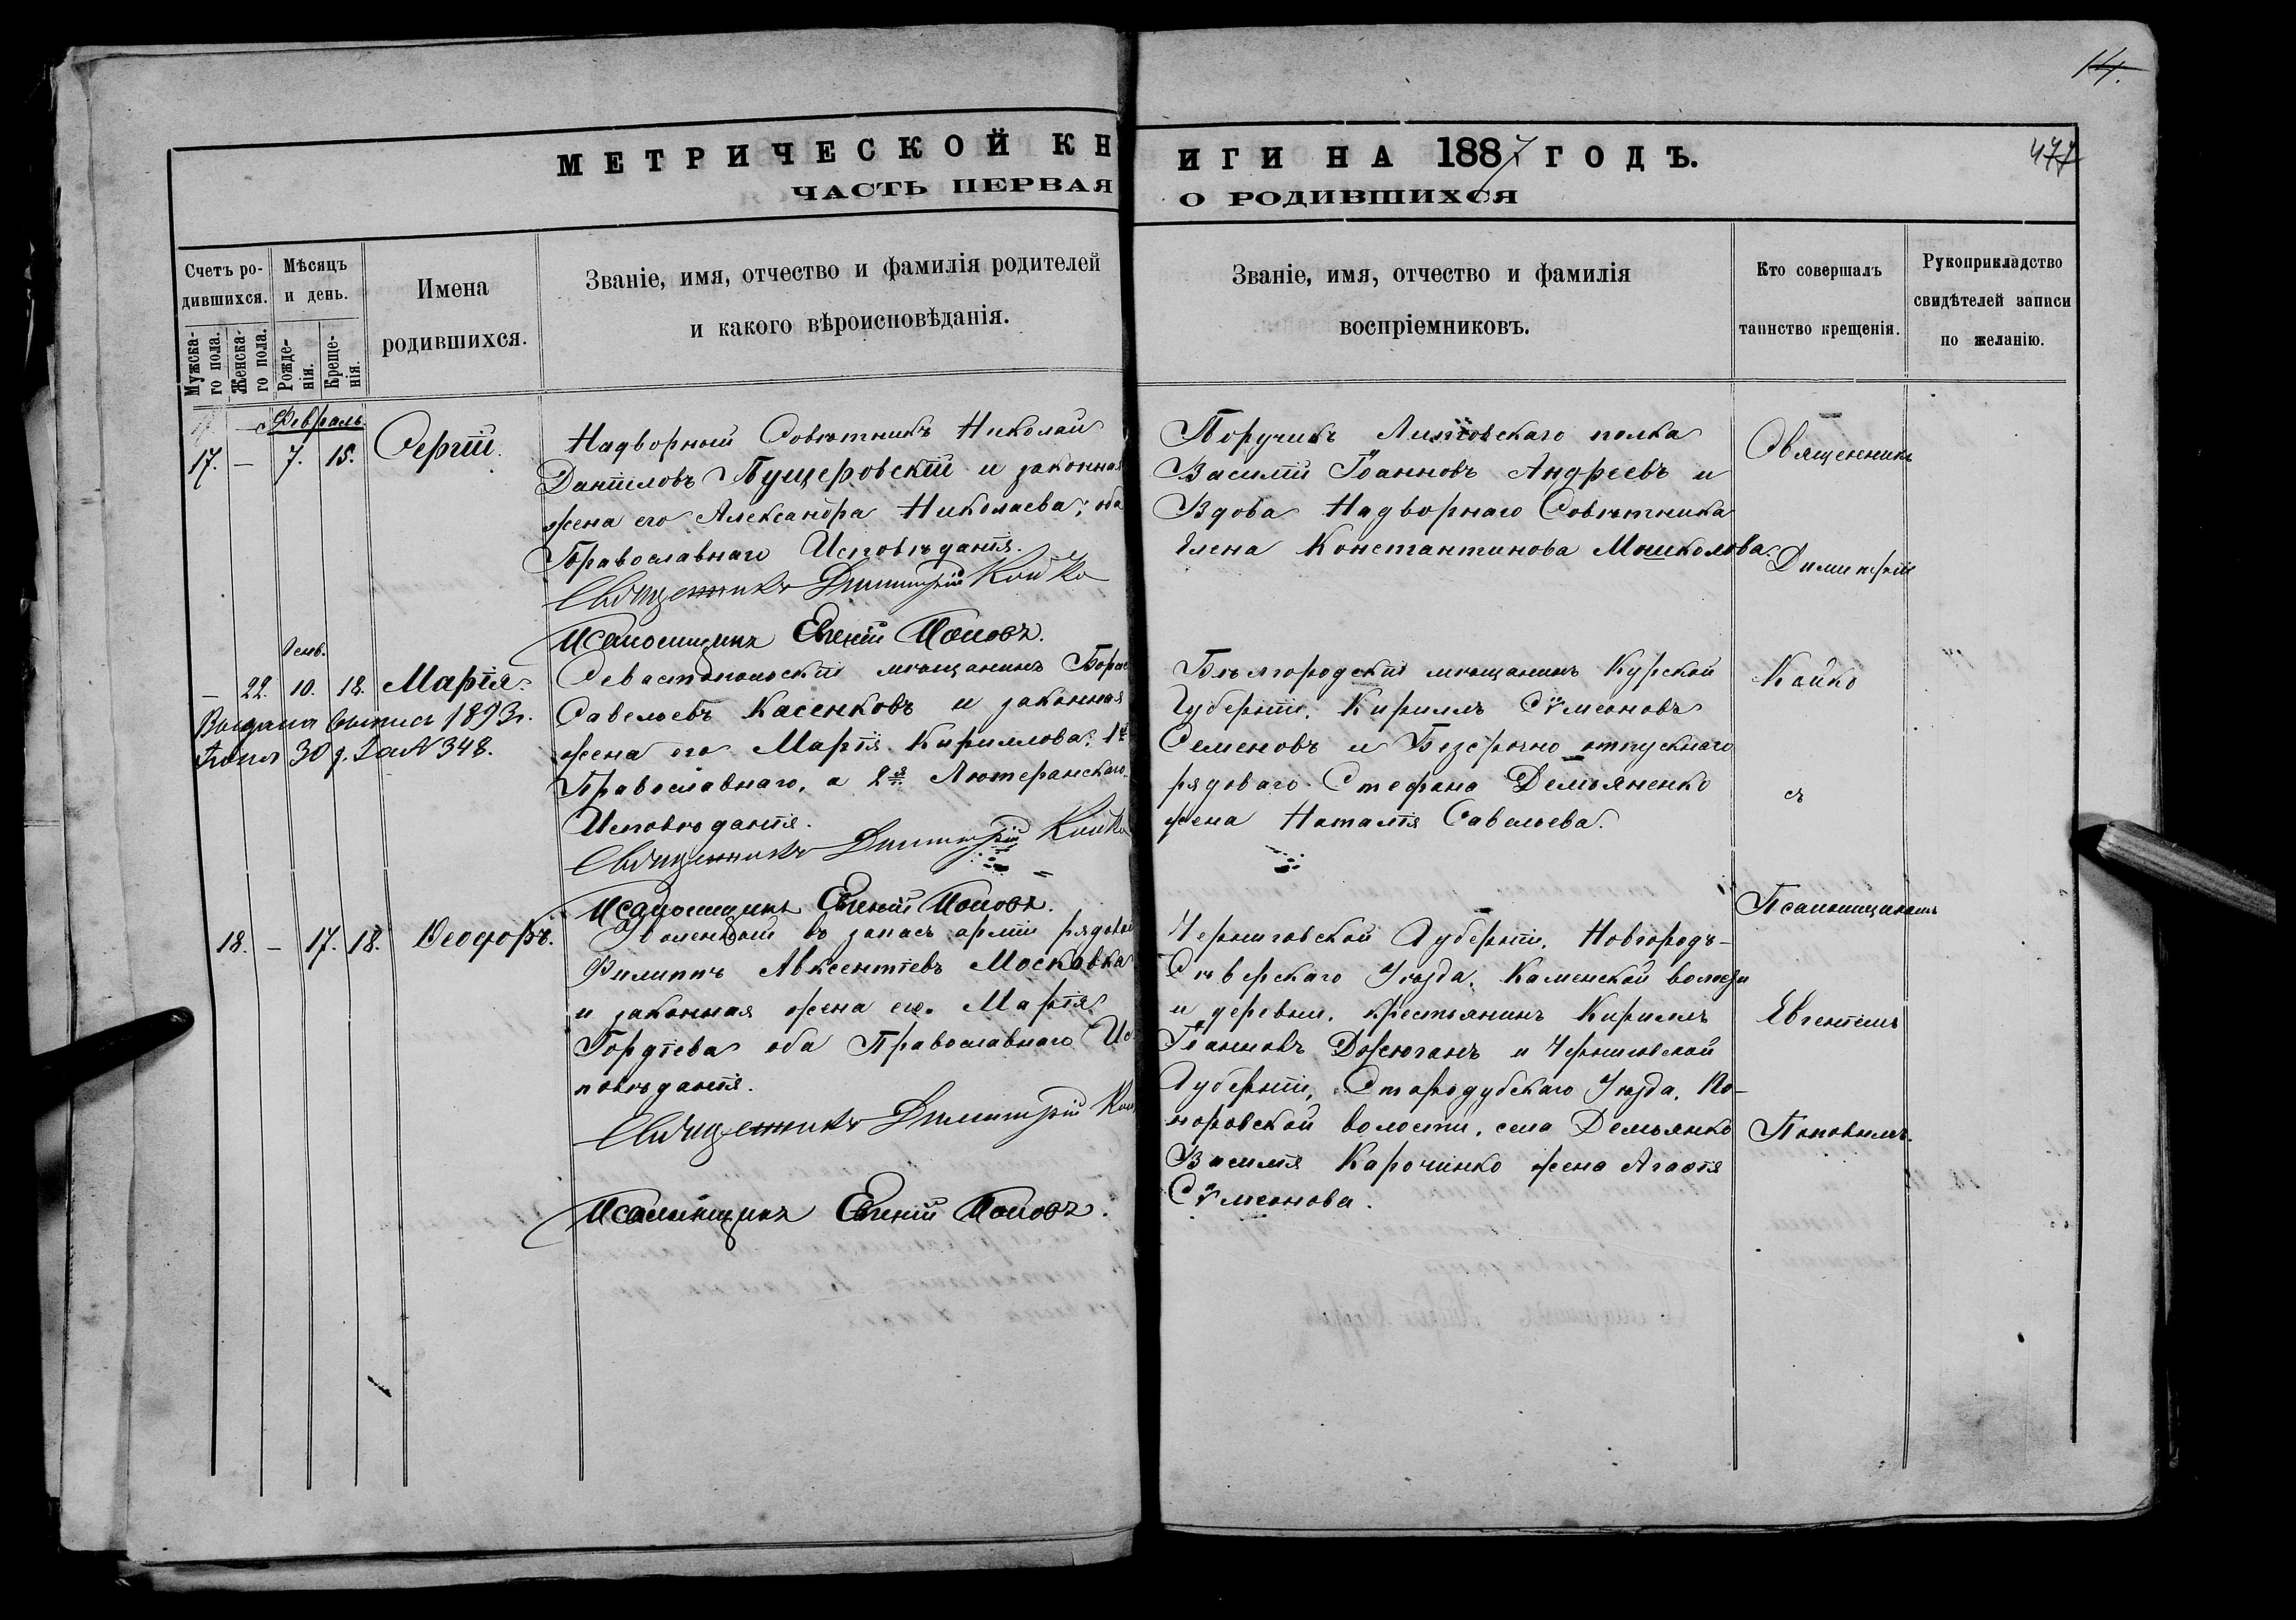 14.
МЕТРИЧЕСКОЙ КНИГИ НА 1887 ГОДЪ.
477
ЧАСТЬ ПЕРВАЯ О РОДИВШИХСЯ
Счетъ ро-
дившихся.
Мужска-
го пола.
Женска-
го пола.
Мѣсяцъ
и день.
Рожде-
нія.
Креще-
нія.
Имена
родившихся.
Званіе, имя, отчество и фамилія родителей
и какого вѣроисповѣданія.
Званіе, имя, отчество и фамилія
воспріемниковъ.
Кто совершалъ
таинство крещенія.
Рукоприкладство
свидѣтелей записи
по желанію.
Февраль
17. – 7. 15. Сергій.
Надворный Совѣтникъ Николай
Даніиловъ Пущеровскій и законная
жена его Александра Николаева; оба
Православнаго Исповѣданія.
Священникъ Димитрій Койко
Псаломщикъ Евгеній Поповъ.
Поручикъ Литовскаго полка
Василій Іоанновъ Андреевъ и
Вдова Надворнаго Совѣтника
Елена Константинова
Священникъ
Димитрій
Койко
съ
Псаломщикомъ
Евгеніемъ
Поповымъ.
– 22. 10. 18. Марія.
Выдана выпись 1893 г.
30 д. За № 348.
Севастопольскій мѣщанинъ Борис
Савельевъ Касенковъ и законная
жена его Марія Кириллова; 1й
Православнаго, а 2я Лютеранскаго
Исповѣданія.
Священникъ Димитрій Койко
Псаломщикъ Евгеній Поповъ.
Бѣлгородскій мѣщанинъ Курской
Губерніи, Кириллъ Сѵмеоновъ
Семеновъ и Безсрочно отпускнаго
рядоваго Стефана Демьяненко
жена Наталія Савельева.
18. – 17. 18. Ѳеодоръ.
Уволенный въ запасъ арміи рядовой
Филиппъ Авксентіевъ Московка
и законная жена его Марія
Гордіева оба Православнаго Ис
повѣданія.
Священникъ Димитрій Кой
Псаломщикъ Евгеній Поповъ.
Черниговской Губерніи, Новгородъ-
Сѣверскаго Уѣзда, Каменской волости
и деревни, крестьянинъ Кириллъ
Іоанновъ Дожюганъ и Черниговской
Губерніи, Стародубскаго Уѣзда, По-
норовской волости, села Демьянко
Василія Карочинко жена Агаѳія
Сѵмеонова.